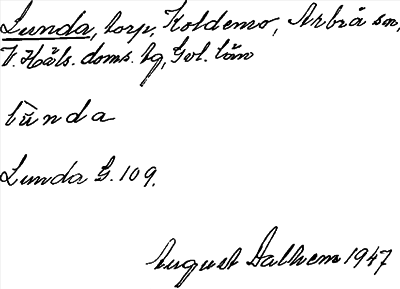 Lunda, torp, Koldemo, Arbrå sn,
V. Häls. doms. tg, Gvl. län
lu̇nda
Lunda G. 109.
August Dalhem 1947